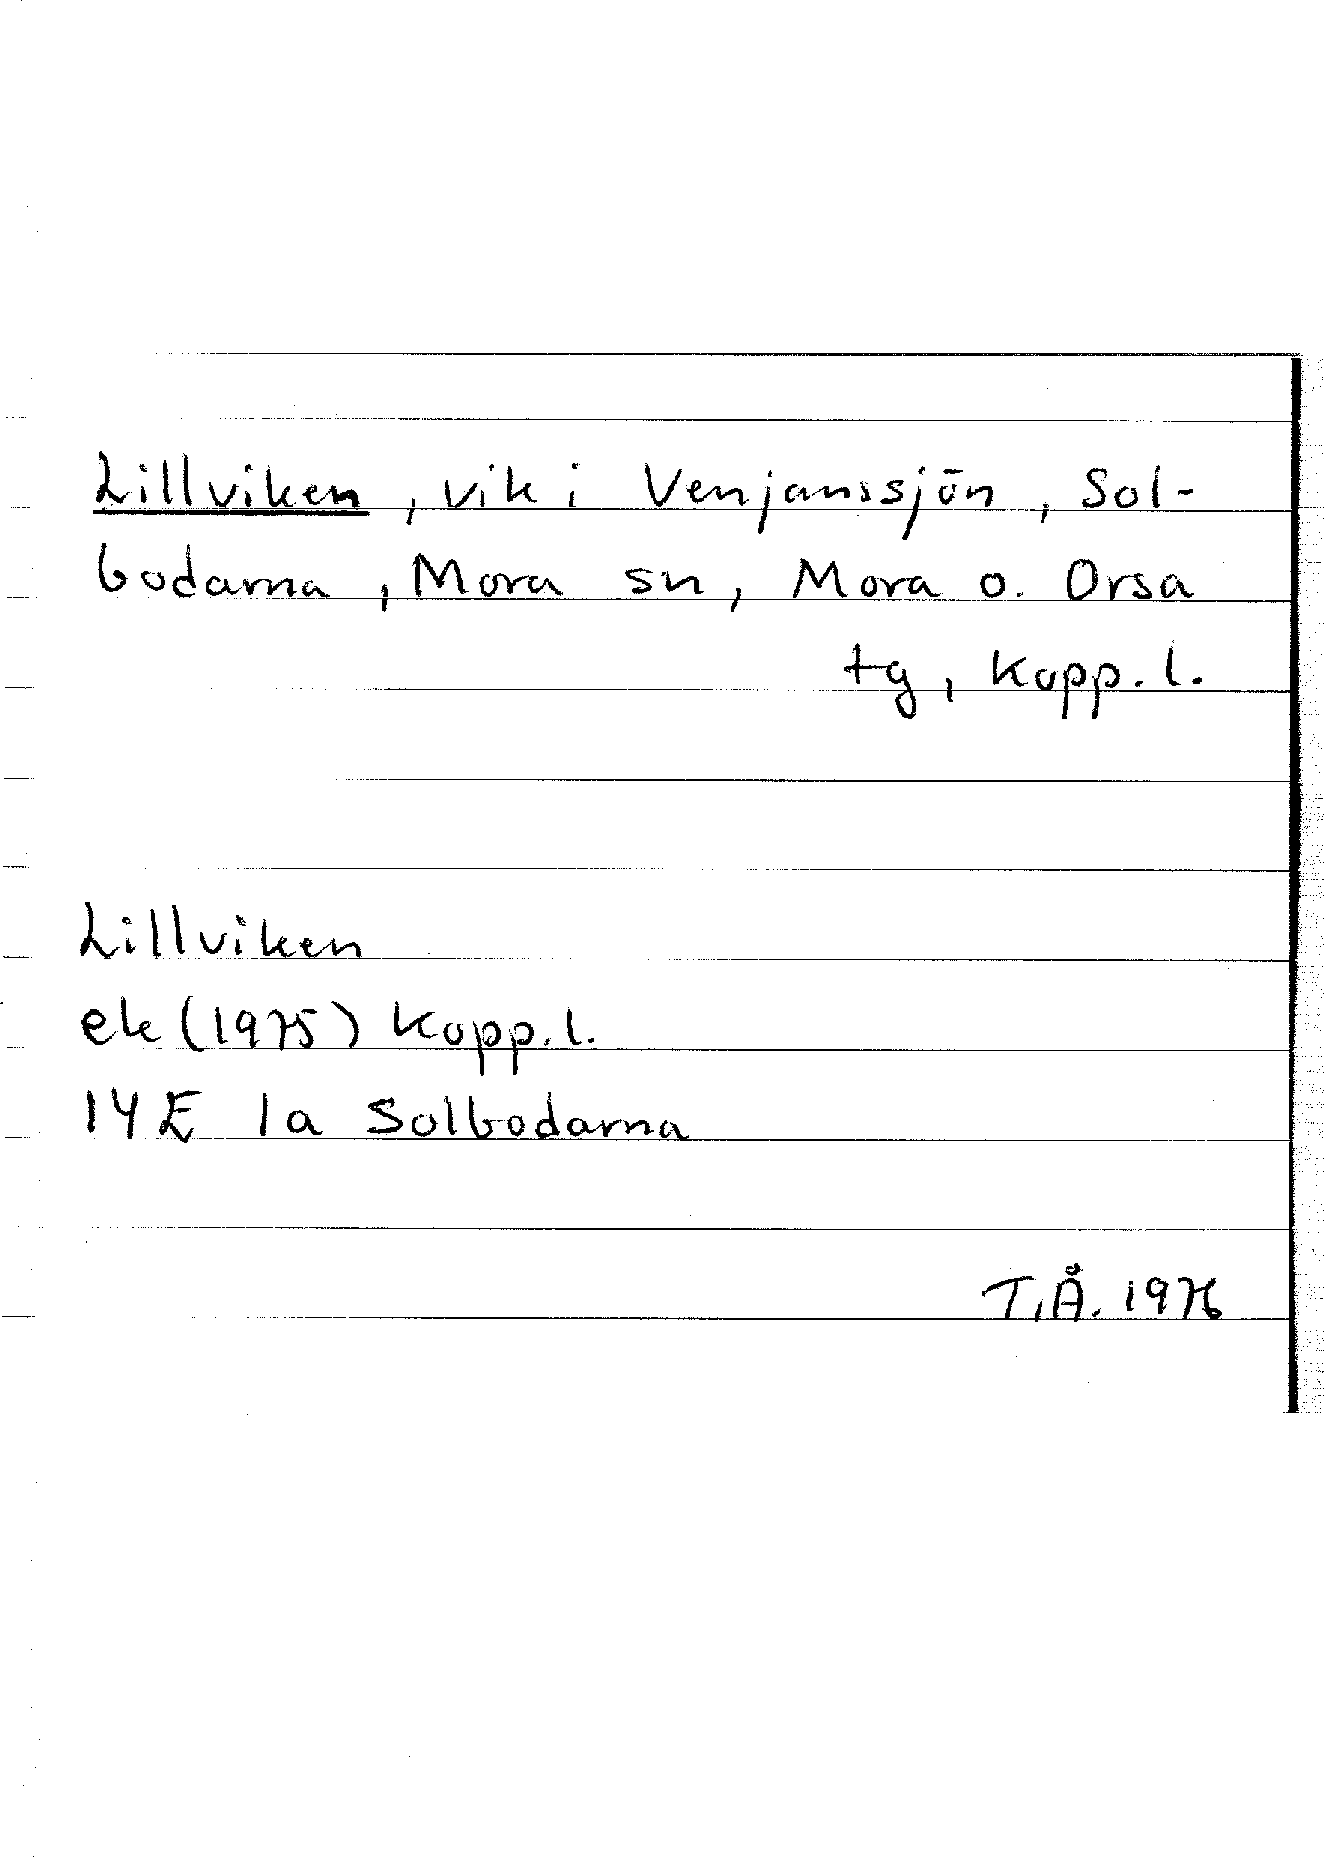 Lillviken, vik i Venjanssjön, Sol-
bodarna, Mora sn, Mora o. Orsa
tg, Kopp. l.
Lillviken
ek (1975) Kopp. l.
14E 1a Solbodarna
T.Å. 1976